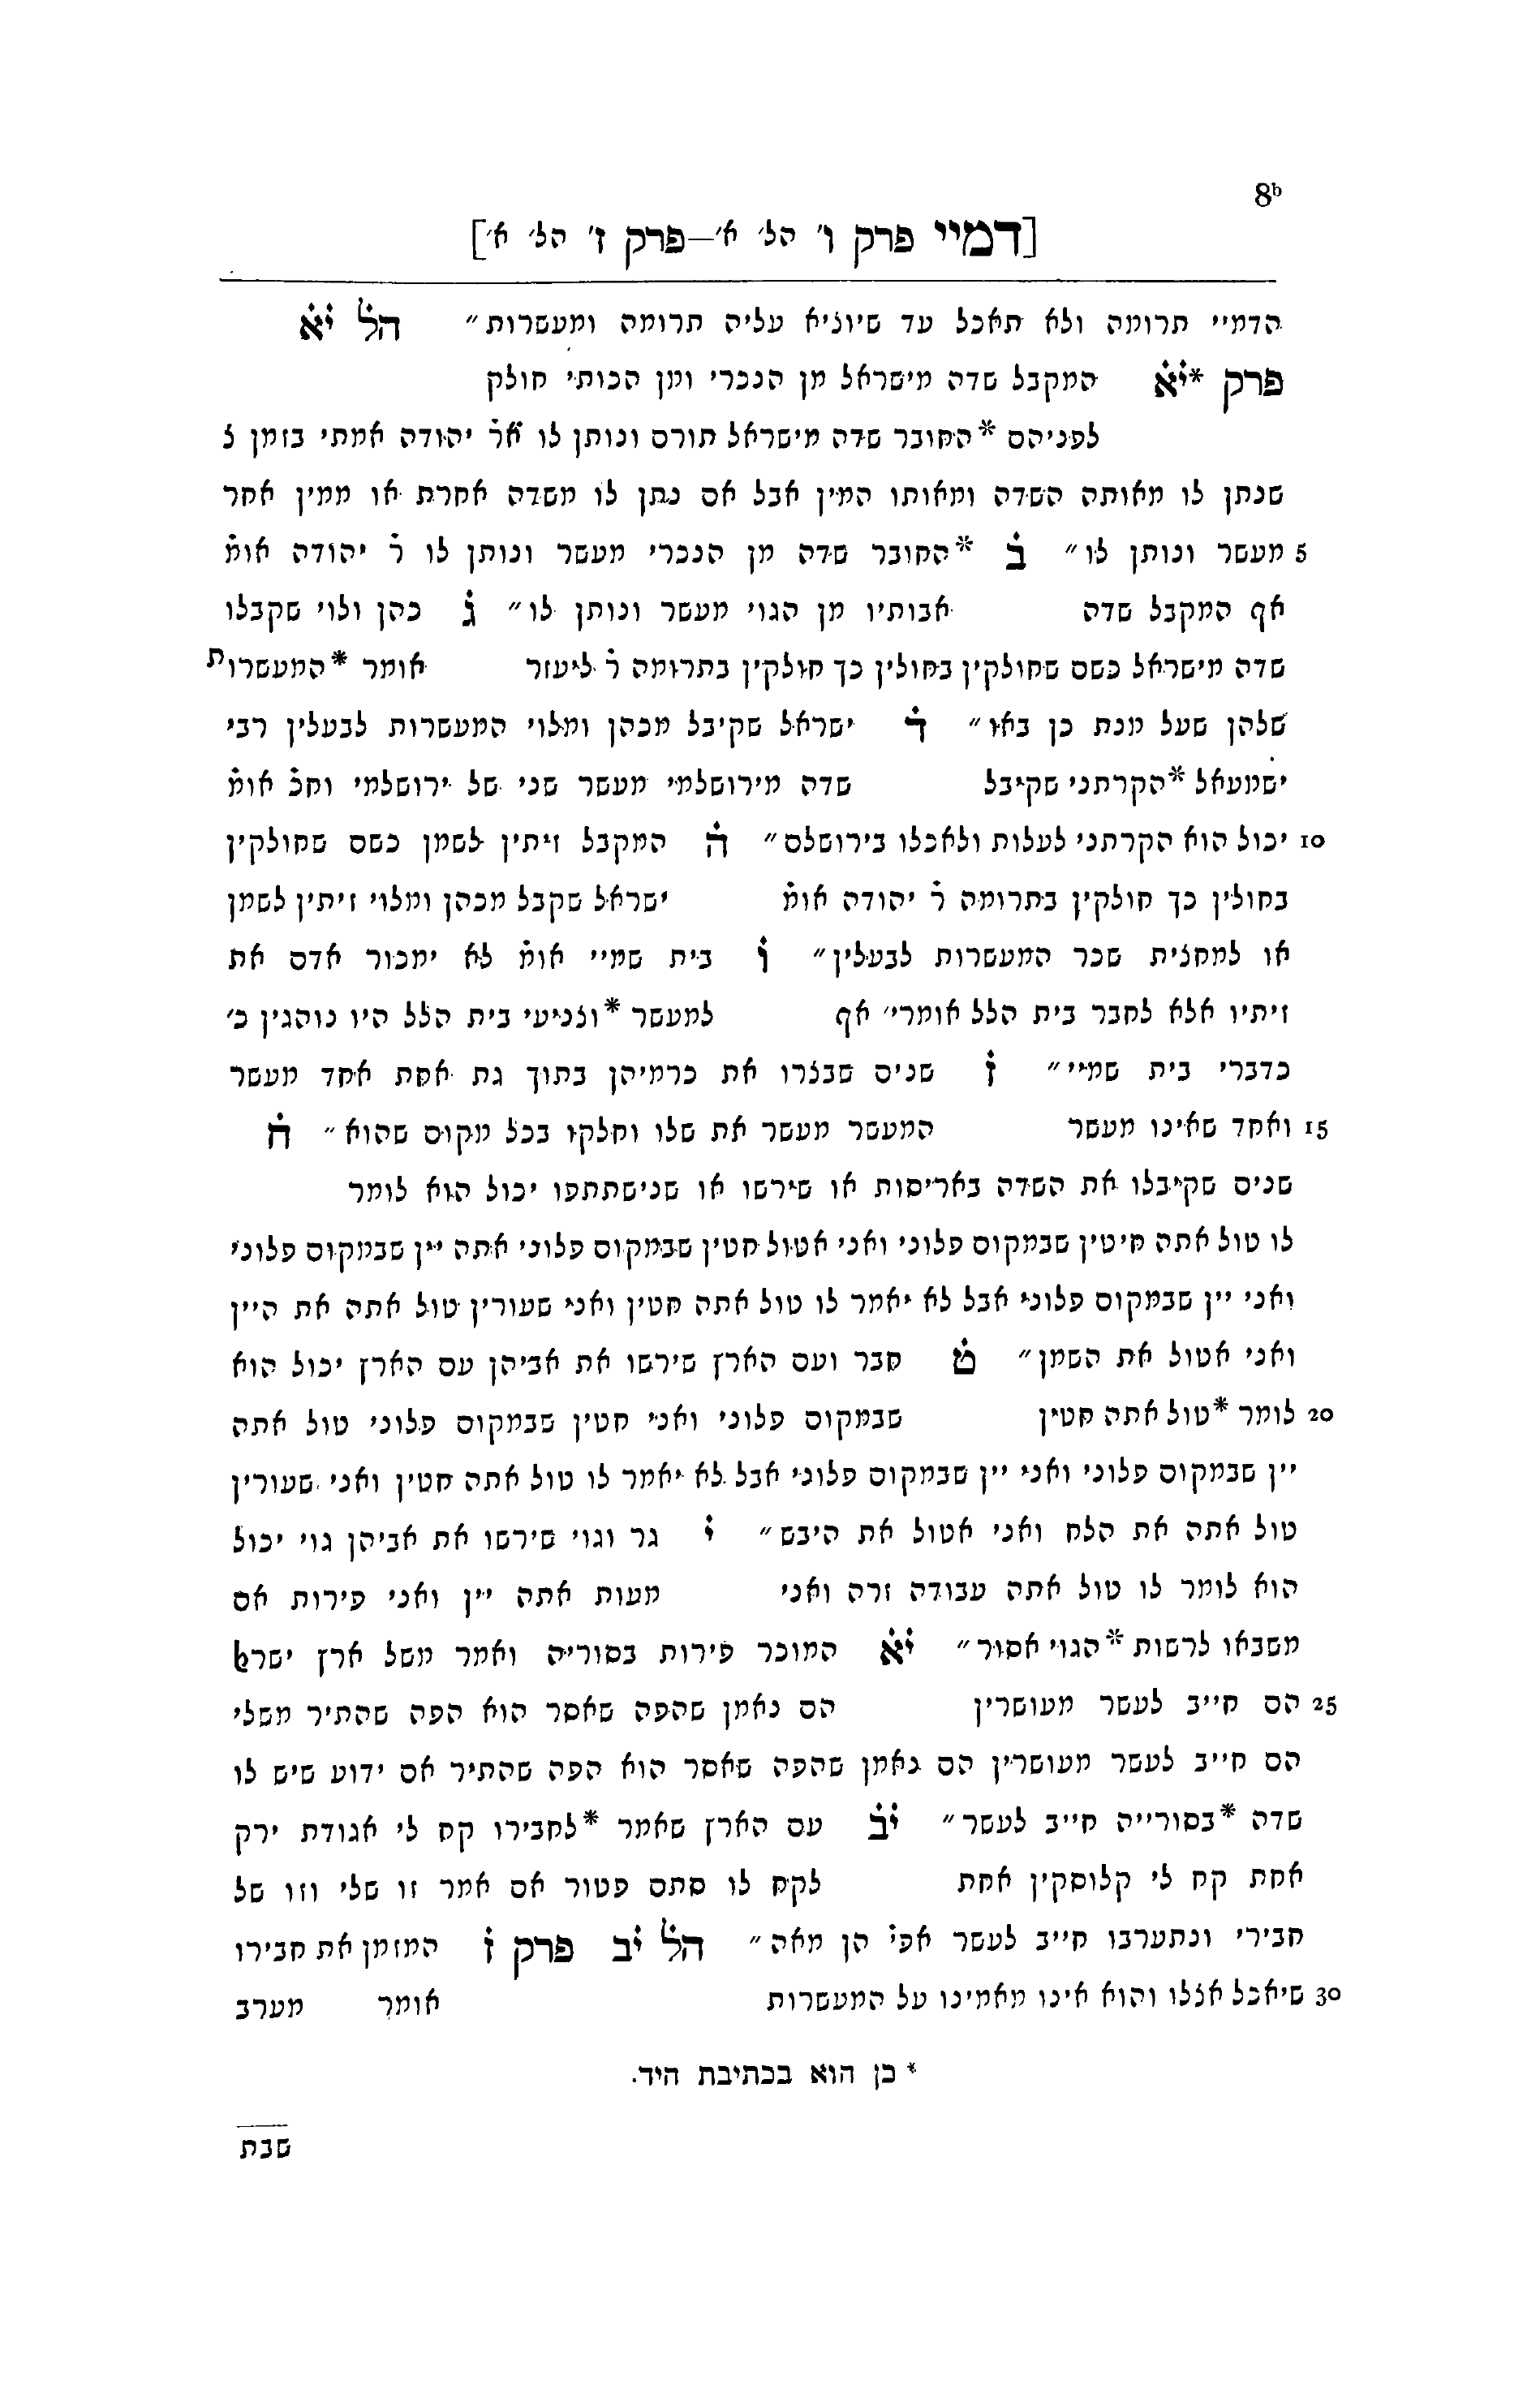 8b
[דמיי פרק ו׳ הל׳ א׳—פרק ז׳ הל׳ א׳]
הדמיי תרומה ולא תאכל עד שיוציא עליה תרומה ומעשרות״ הל̇ י̇א̇
פרק *י̇א̇ המקבל שדה מישראל מן הנכרי ומן הכותי חולק
לפניהם *החובר שדה מישראל תורם ונותן לו א̇ר̇ יהודה אמתי בזמן ל
שנתן לו מאותה השדה ומאותו המין אבל אם נתן לו משדה אחרת או ממין אחר
5 מעשר ונותן לו״ ב̇ *החובר שדה מן הנכרי מעשר ונותן לו ר̇ יהודה אומ̇
אף המקבל שדה אבותיו מן הגוי מעשר ונותן לו״ ג̇ כהן ולוי שקבלו
שדה מישראל כשם שחולקין בחולין כך חולקין בתרומה ר̇ ליעזר אומר *המעשרות
שלהן שעל מנת כן באו״ ד̇ ישראל שקיבל מכהן ומלוי המעשרות לבעלין רבי
ישמעאל *הקרתני שקיבל שדה מירושלמי מעשר שני של ירושלמי וחכ̇ אומ̇
10 יכול הוא הקרתני לעלות ולאכלו בירושלם״ ה̇ המקבל זיתין לשמן כשם שחולקין
בחולין כך חולקין בתרומה ר̇ יהודה אומ̇ ישראל שקבל מכהן ומלוי זיתין לשמן
או למחצית שכר המעשרות לבעלין״ ו̇ בית שמיי אומ̇ לא ימכור אדם את
זיתיו אלא לחבר בית הלל אומרי׳ אף למעשר *וצניעי בית הלל היו נוהגין כ׳
כדברי בית שמיי״ ז̇ שנים שבצרו את כרמיהן בתוך גת אחת אחד מעשר
15 ואחד שאינו מעשר המעשר מעשר את שלו וחלקו בכל מקום שהוא״ ח̇
שנים שקיבלו את השדה באריסות או שירשו או שנישתתפו יכול הוא לומר
לו טול אתה חיטין שבמקום פלוני ואני אטול חטין שבמקום פלוני אתה יין שבמקום פלוני
ואני יין שבמקום פלוני אבל לא יאמר לו טול אתה חטין ואני שעורין טול אתה את היין
ואני אטול את השמן״ ט̇ חבר ועם הארץ שירשו את אביהן עם הארץ יכול הוא
20 לומר *טול אתה חטין שבמקום פלוני ואני חטין שבמקום פלוני טול אתה
יין שבמקום פלוני ואני יין שבמקום פלוני אבל לא יאמר לו טול אתה חטין ואני שעורין
טול אתה את הלח ואני אטול את היבש״ י̇ גר וגוי שירשו את אביהן גוי יכול
הוא לומר לו טול אתה עבודה זרה ואני מעות אתה יין ואני פירות אם
משבאו לרשות *הגוי אסור״ י̇א̇ המוכר פירות בסוריה ואמר משל ארץ ישראל
25 הם חייב לעשר מעושרין הם נאמן שהפה שאסר הוא הפה שהתיר משלי
הם חייב לעשר מעושרין הם נאמן שהפה שאסר הוא הפה שהתיר אם ידוע שיש לו
שדה *בסורייה חייב לעשר״ י̇ב̇ עם הארץ שאמר *לחבירו קח לי אגודת ירק
אחת קח לי קלוסקין אחת לקח לו סתם פטור אם אמר זו שלי וזו של
חבירי ונתערבו חייב לעשר אפי̇ הן מאה״ הל̇ י̇ב פרק ז̇ המזמן את חבירו
30 שיאכל אצלו והוא אינו מאמינו על המעשרות אומר מערב
* כן הוא בכתיבת היד.
שבת